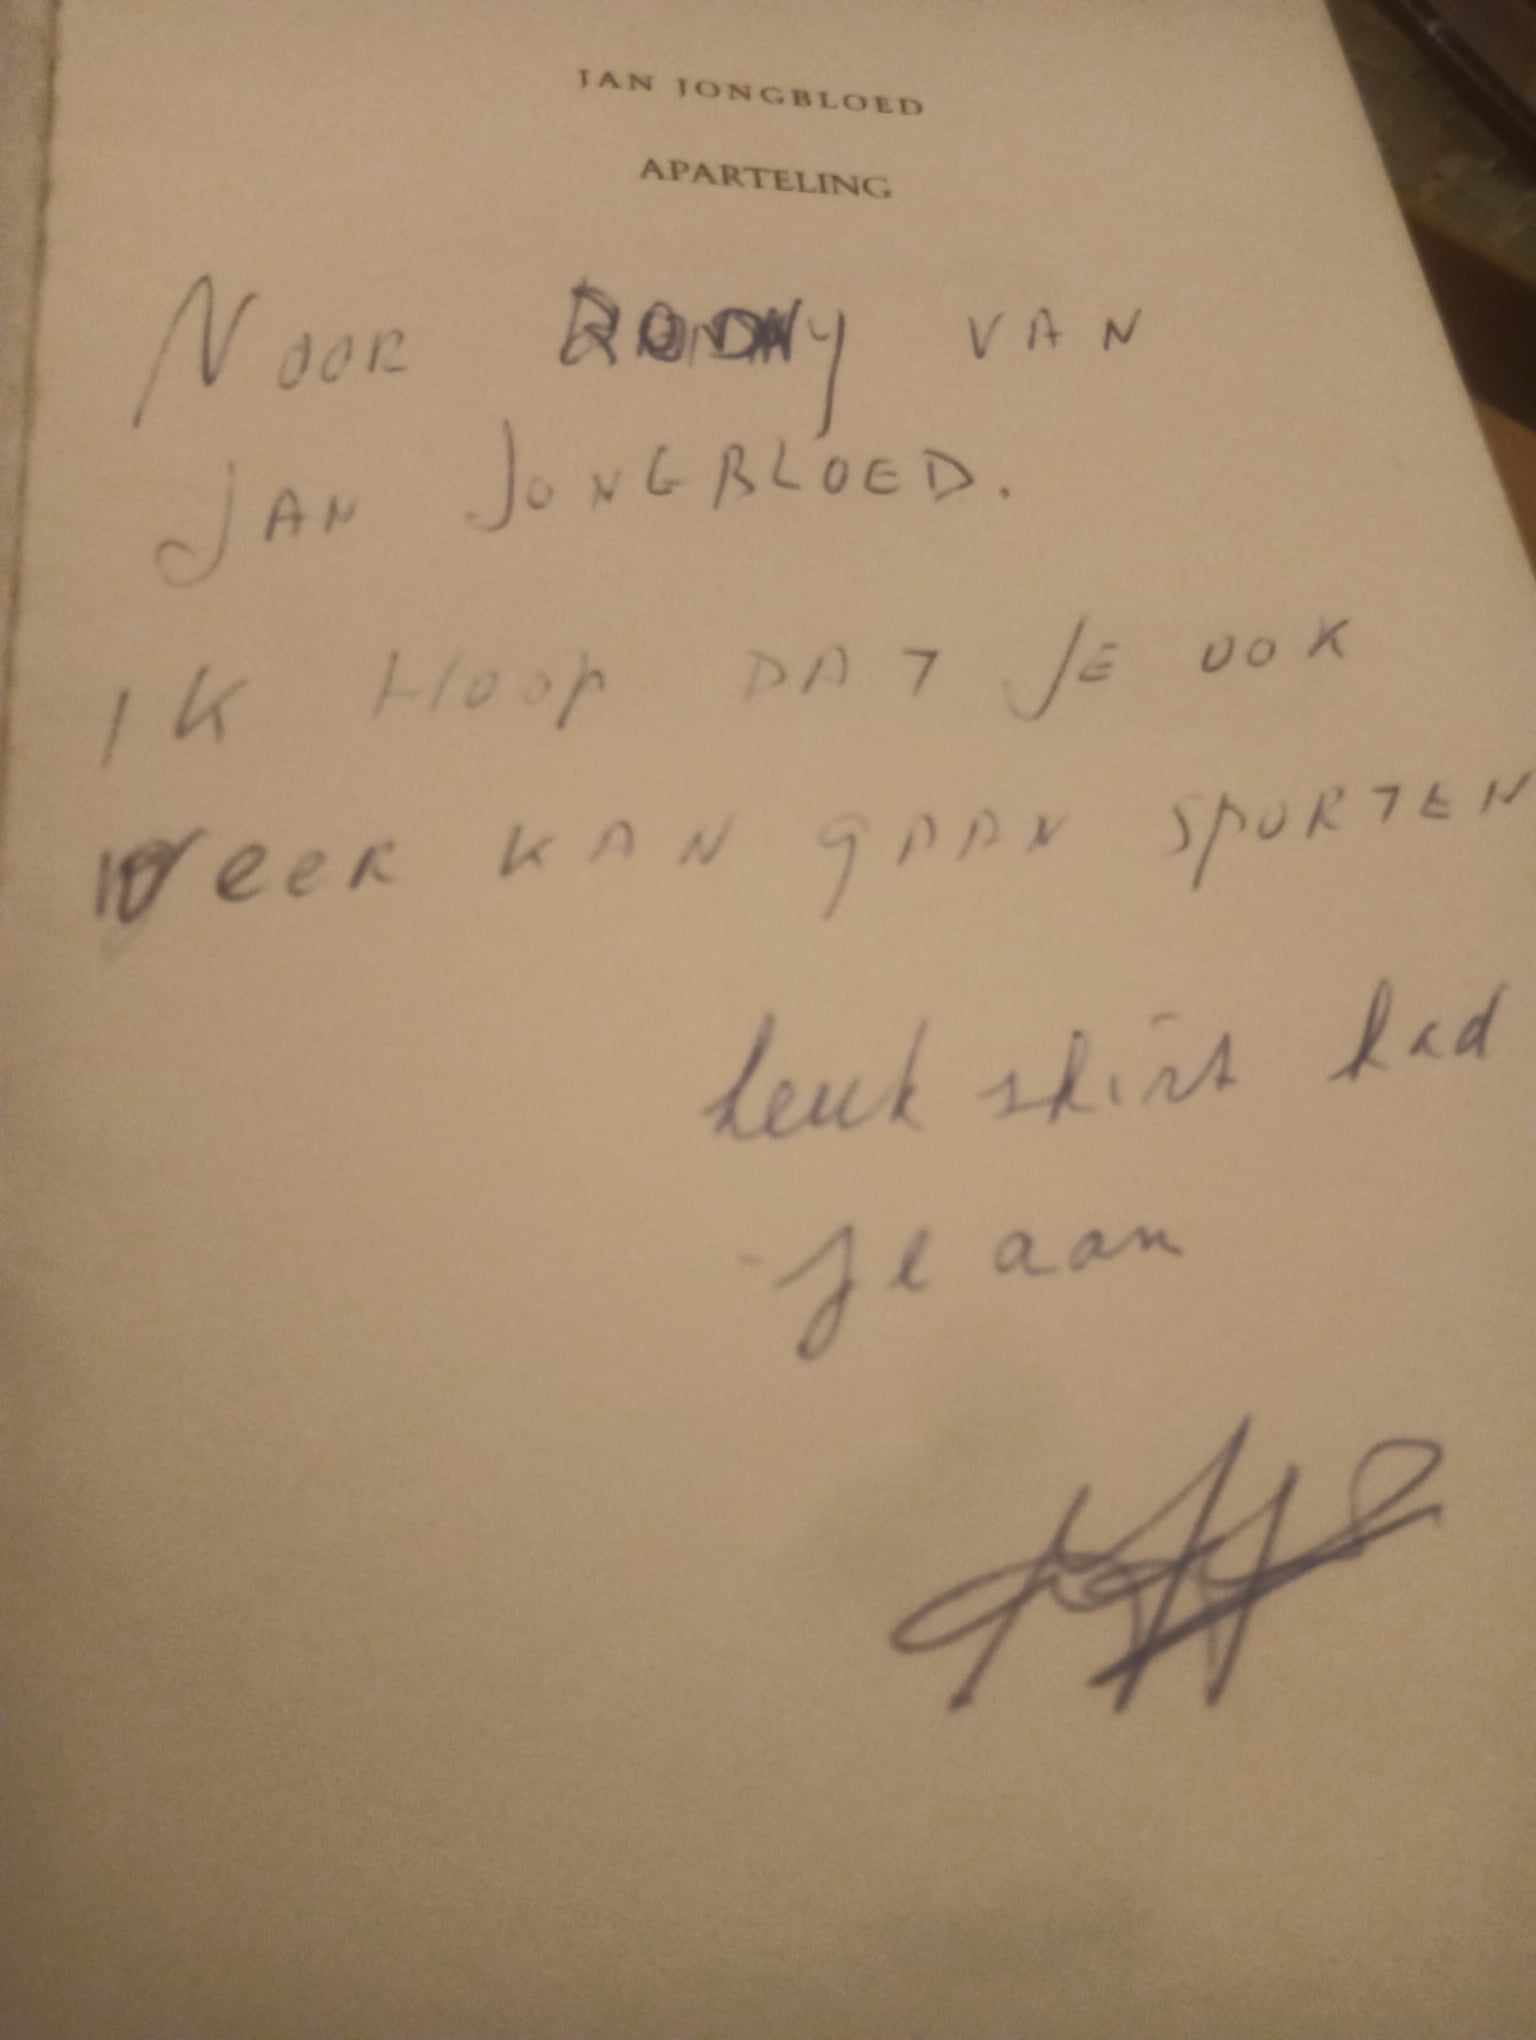 JAN JONGBLOED
APARTELING
VOOR RODNY VAN
JAN JONGBLOED.
IK HOOP DAT JE OOK
WEER KAN GAAN SPORTEN
leuk shirt had
je aan